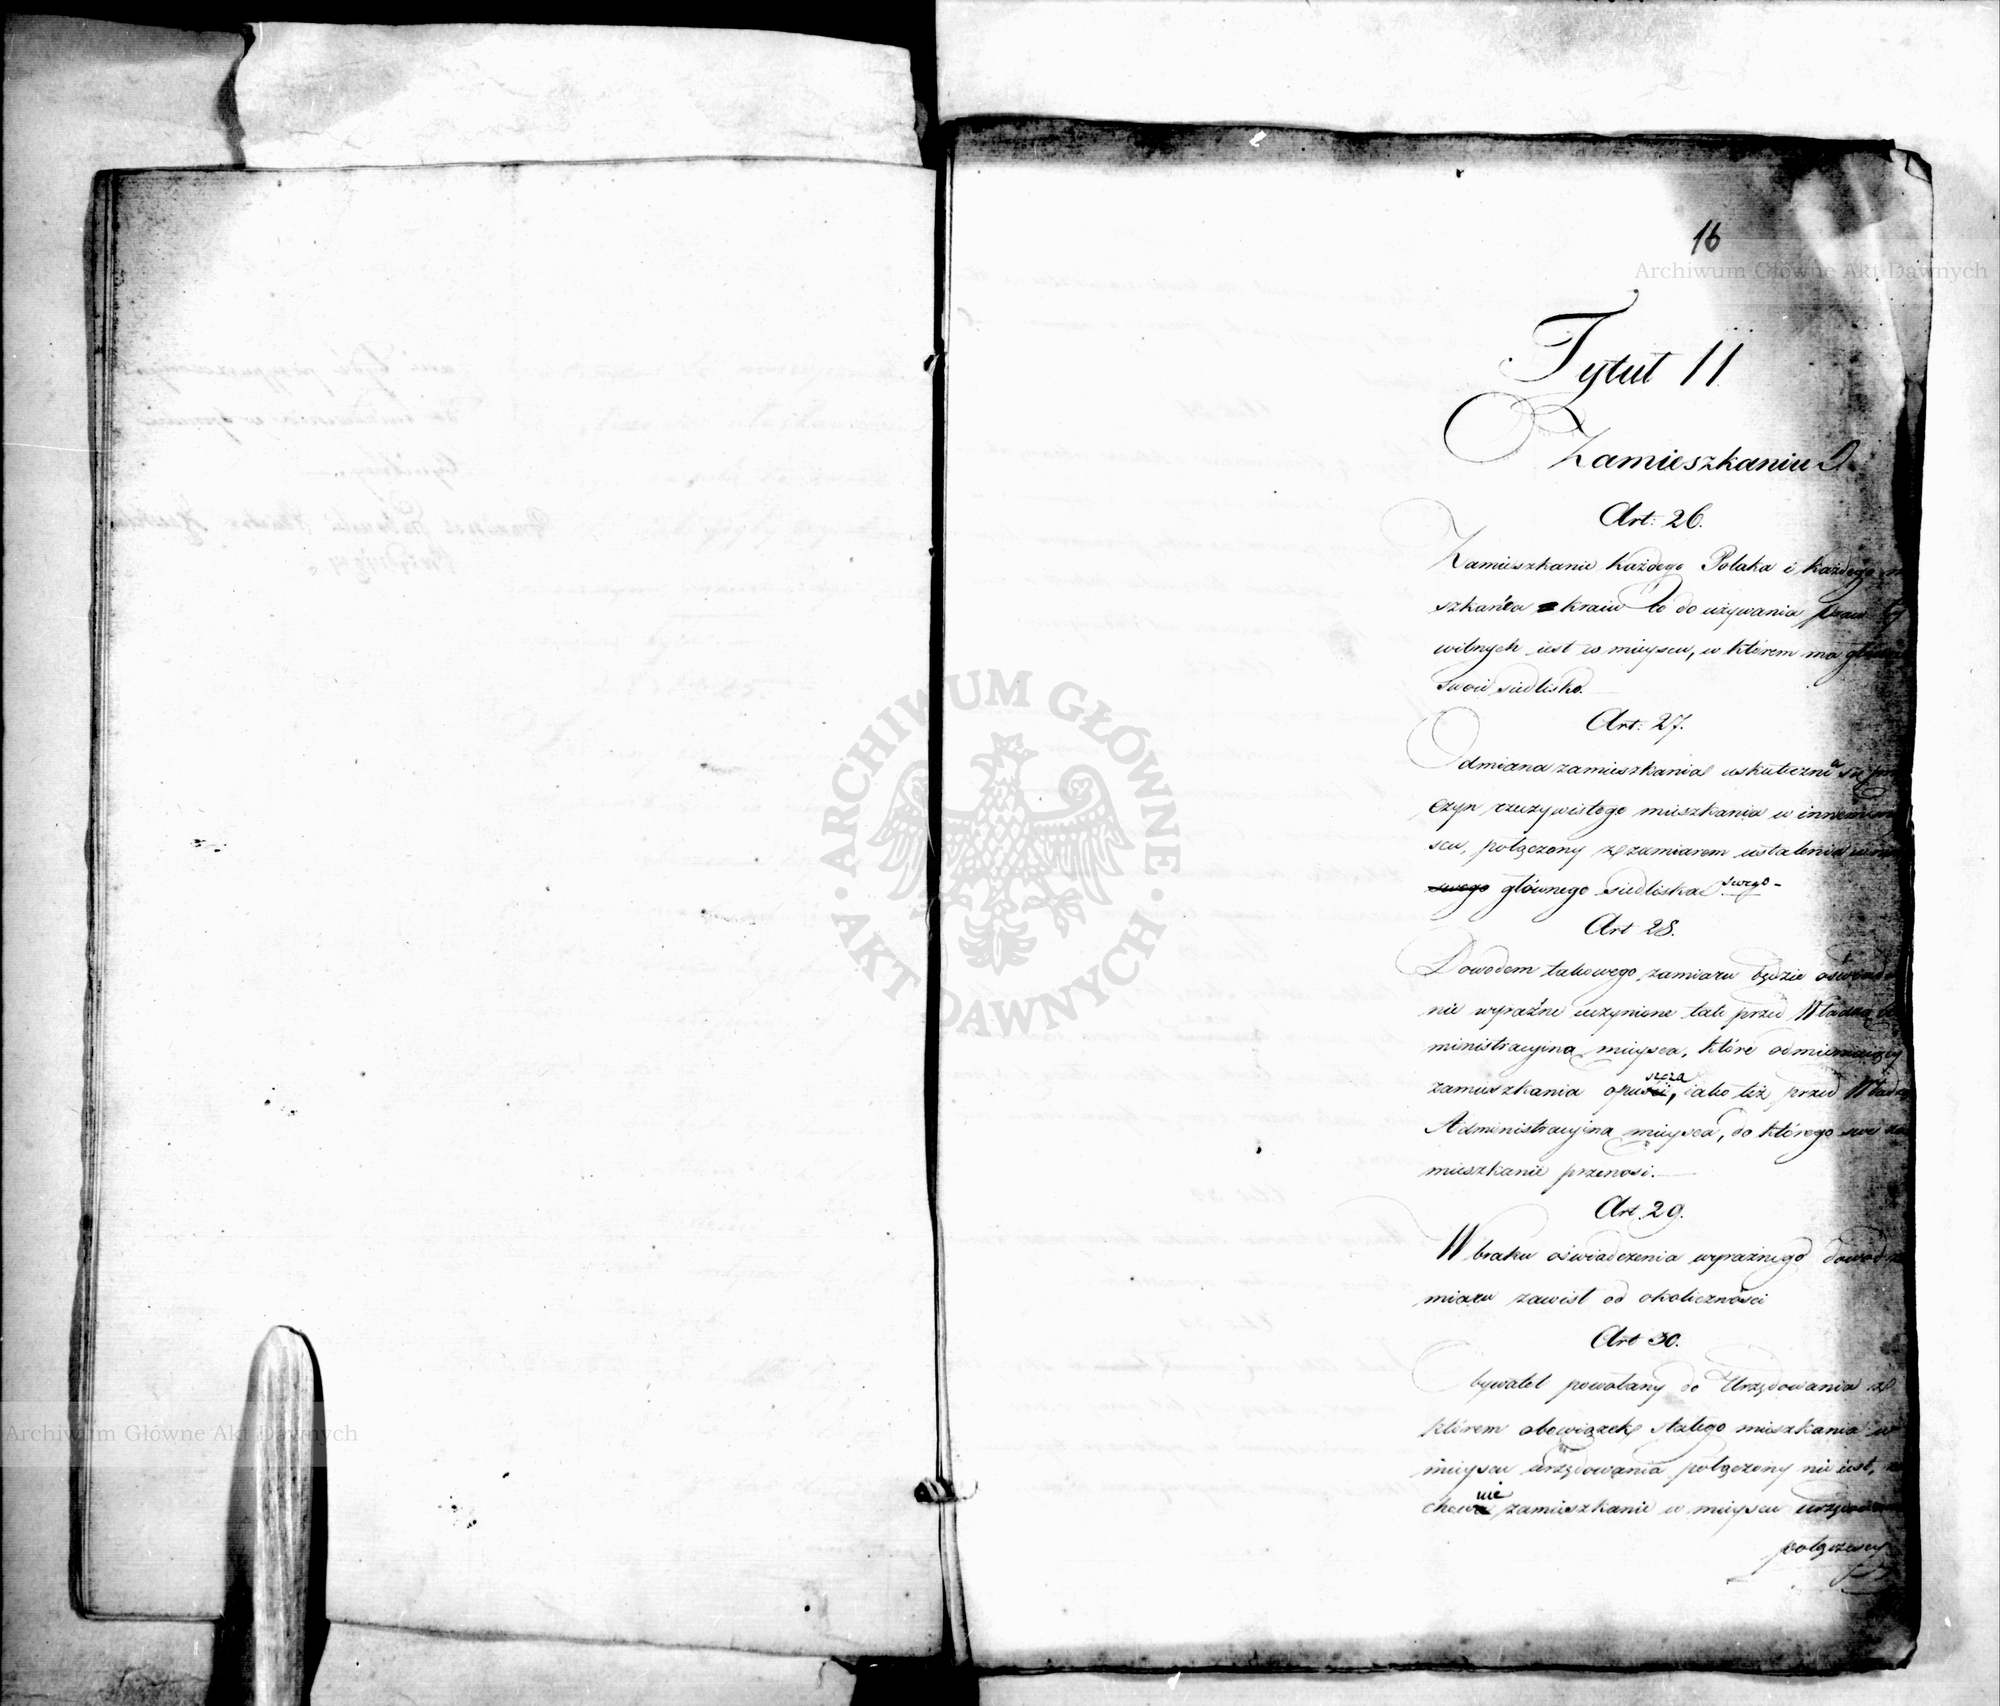 16
Archiwum Główne Akt Dawnych
Tytuł II
Zamieszkaniu
Art: 26.
Zamieszkanie każdego Polaka i każdego
szkańca kraiu co do używania praw Cy
wilnych iest w mieyscu, w którem ma
swoie siedlisko.
Art: 27.
Odmiana zamieszkania uskutecznia się
czyn rzeczywistego mieszkania w innem
scu, połączony z zamiarem ustalenia
swego głównego siedliska swego
Art 28.
Dowodem takowego zamiaru będzie
nie wyraźne uczynione tak przed Władzą
ministracyjną mieysca, które odmieniaiący
szcza
zamieszkania opuści, iako też przed
Administracyjną mieysca, do którego swe
mieszkanie przenosi.
Art. 29.
W braku oświadczenia wyraźnego dowód
miaru zawisł od okoliczności
Art 30.
Obywatel powołany do Urzędowania z
którem obowiązek stałego mieszkania w
mieyscu urzędowania połączony nie iest,
nie
chowa zamieszkanie w mieyscu
połączony
ARCHIWUM GŁÓWNE
AKT DAWNYCH
Archiwum Główne Akt Dawnych